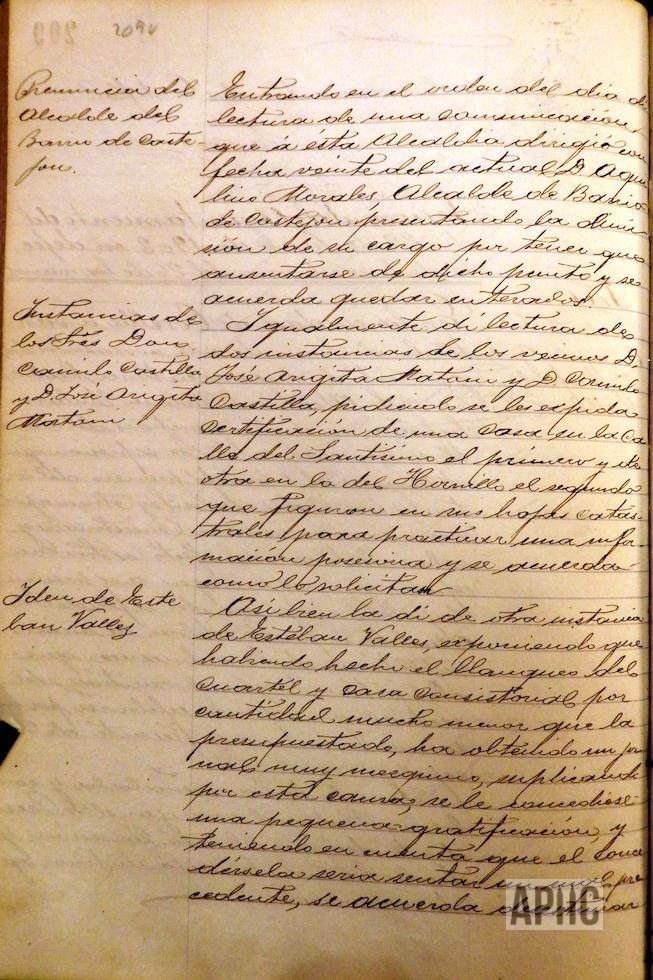 209v
Renuncia del
Alcalde del
Barrio de Caste-
jon.
Entrando en el orden del dia di
lectura de una comunicación
que á ésta Alcaldia dirigió con
fecha veinte del actual D. Aqui
lino Morales Alcalde de Barrio
de Castejon presentando la dimi
sión de su cargo por tener que
ausentarse de dicho punto y se
acuerda quedar enterados.
Instancias de
los Srés Don
Camilo Castilla
y D. José Angita
Matani
Igualmente di lectura de
dos instancias de los vecinos D.
José Angita Matani y D. Camilo
Castilla, pidiendo se les expida
certificación de una casa en la Ca
lle del Santisimo el primero y de
otra en la del Hornillo el segundo
que figuran en sus hojas catas-
trales para practicar una infor
mación posesoria y se acuerda
como lo solicitan
Iden de Este
ban Valles
Asi bien la di de otra instancia
de Estéban Valles, exponiendo que
habiendo hecho el blanqueo del
Cuartél y casa Consistorial por
cantidad mucho menor que la
presupuestada, ha obtenido un jor
nal muy mezquino, suplicando
por esta causa, se le concediese
una pequeña gratificación, y
teniendo en cuenta que el conce
dérsela seria sentar un mal pre
cedente, se acuerda desestimar
APHC